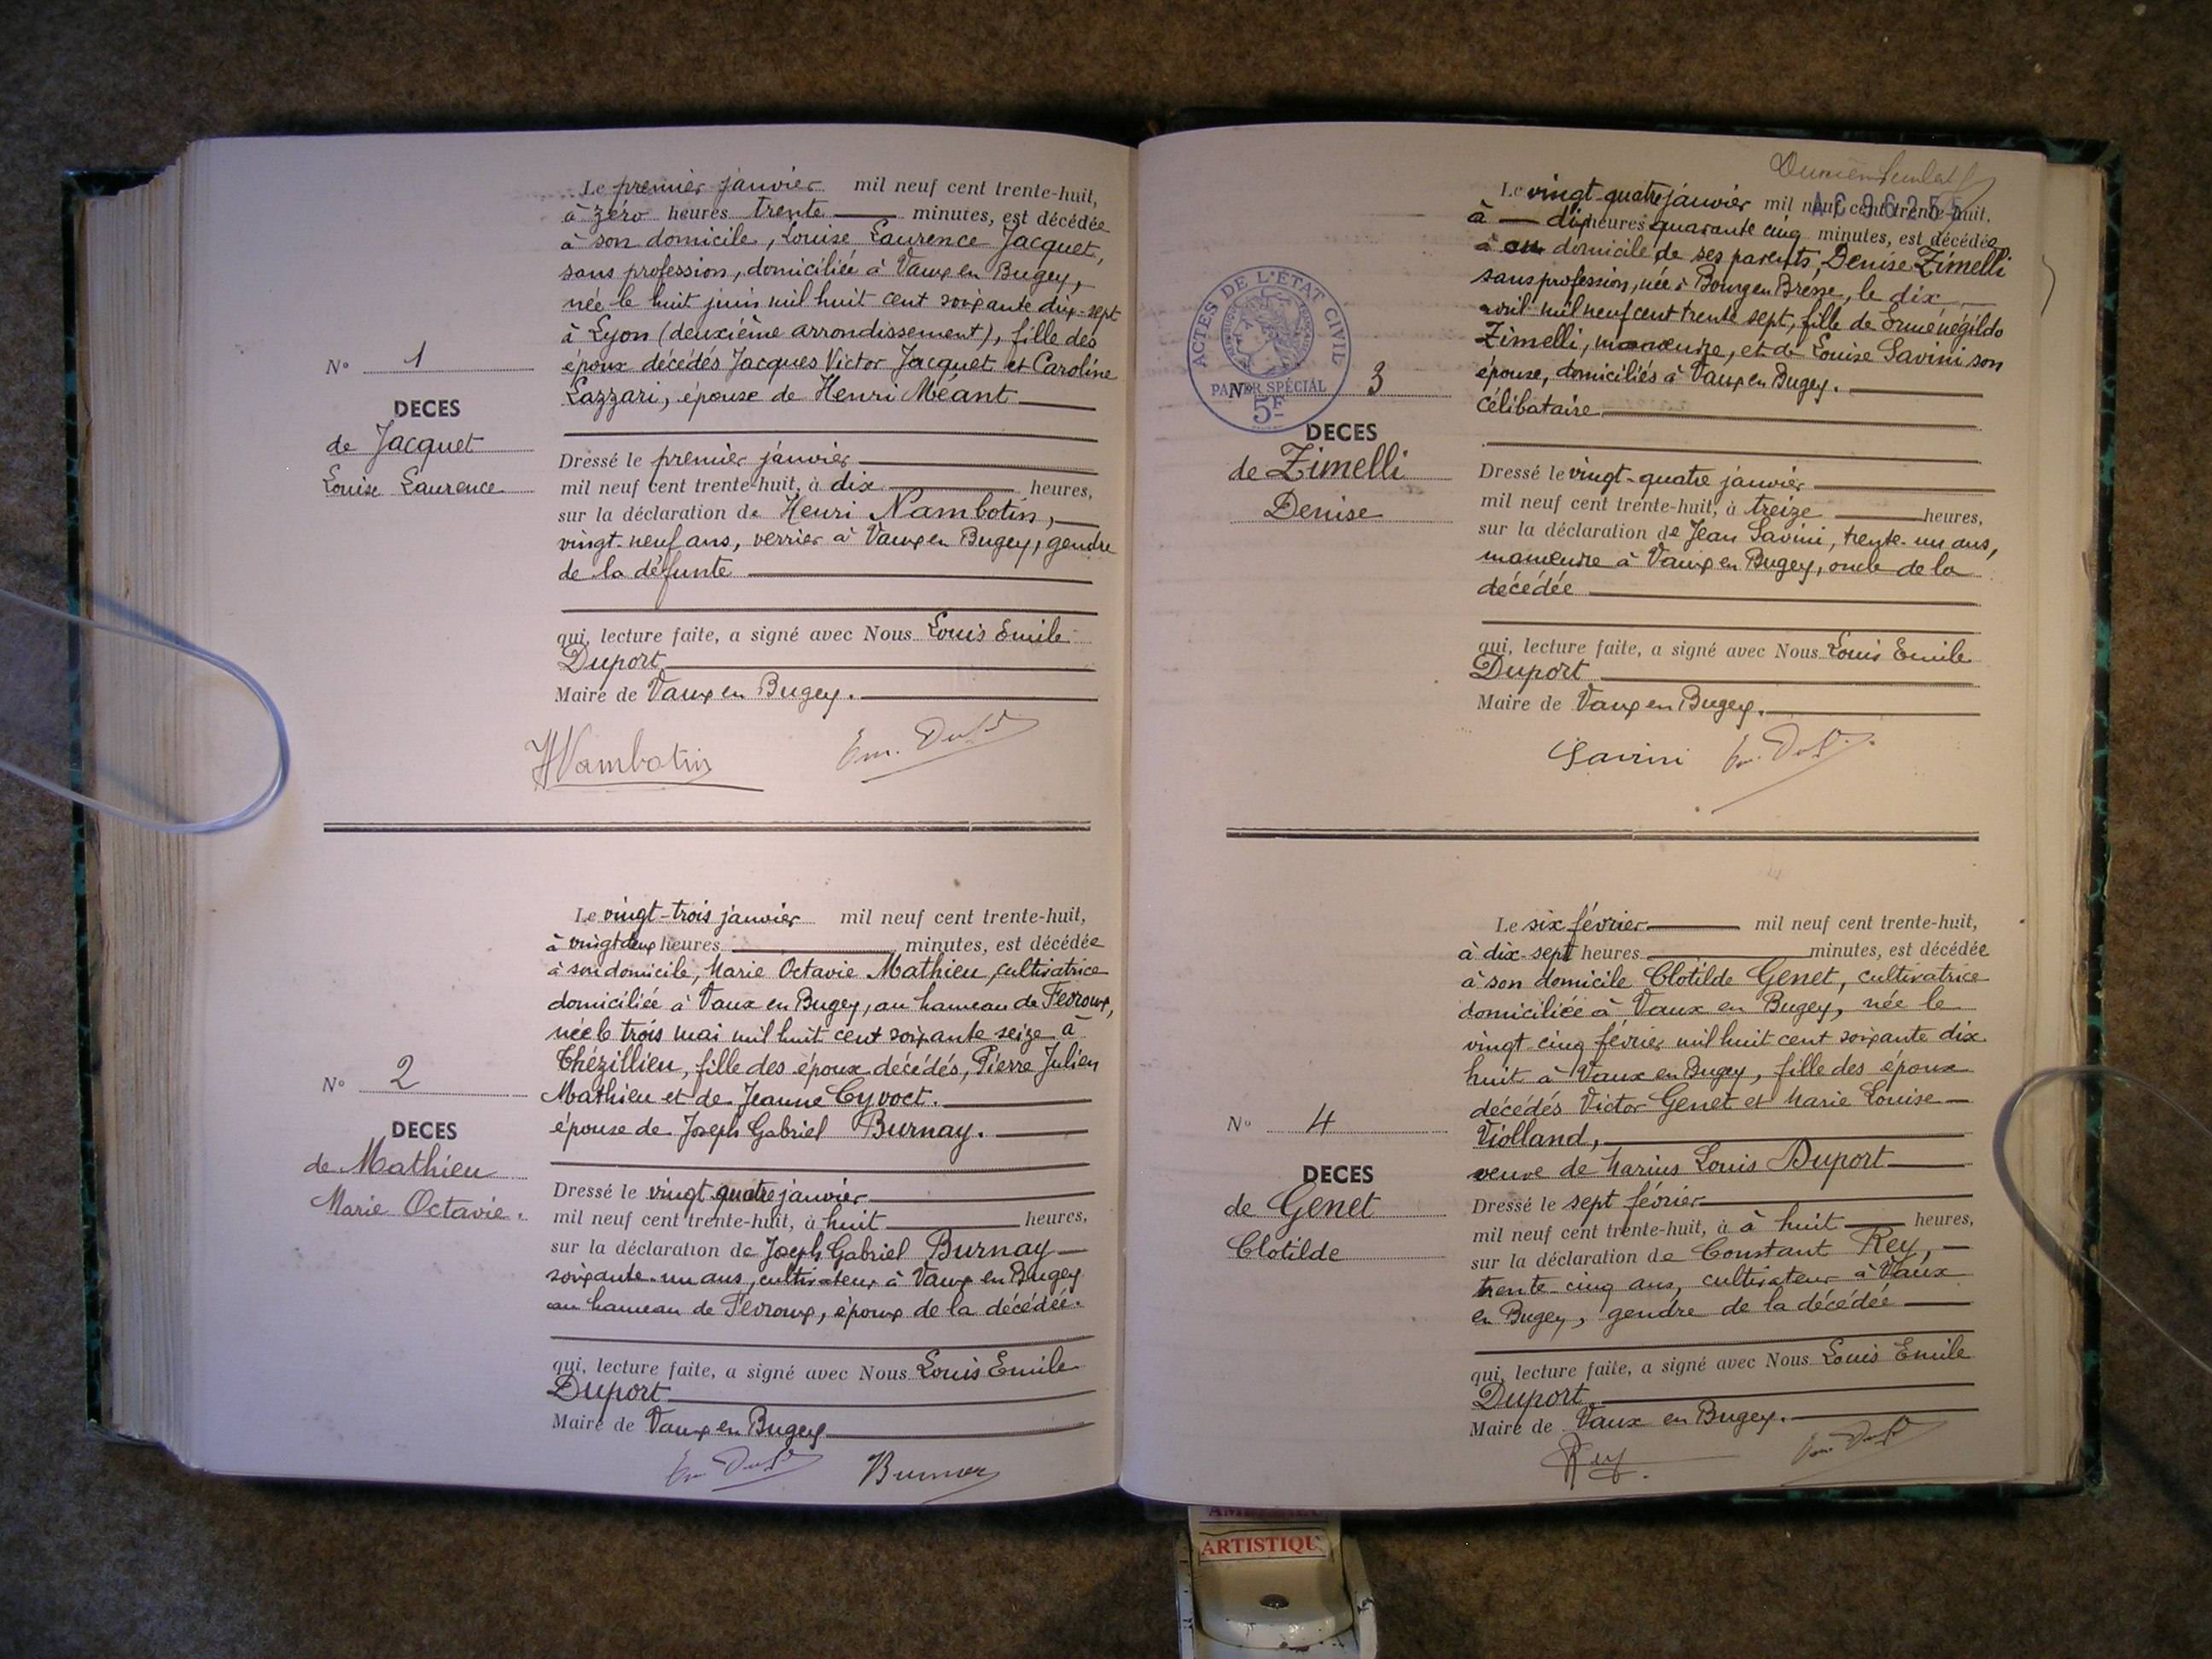 Le premier janvier mil neuf cent trente-huit,
à zéro heures trente minutes, est décédée
à son domicile, Louise Laurence Jacquet,
sans profession, domiciliée à Vaux en Bugey,
née le huit juin mil huit cent soixante dix-sept
à Lyon (deuxième arrondissement), fille des
époux décédés Jacques Victor Jacquet et Caroline
Lazzari, épouse de Henri Méant
N° 1
DECES
de Jacquet
Louise Laurence
Dressé le premier janvier
mil neuf cent trente-huit, à dix heures,
sur la déclaration de Henri Nambotin,
vingt-neuf ans, verrier à Vaux en Bugey, gendre
de la défunte
qui, lecture faite, a signé avec Nous Louis Emile
Duport
Maire de Vaux en Bugey.
HNambotin
Le vingt-trois janvier mil neuf cent trente-huit,
à vingt deux heures minutes, est décédée
à son domicile, Marie Octavie Mathieu, cultivatrice
domiciliée à Vaux en Bugey, au hameau de Févroux,
née le trois mai mil huit cent soixante seize à
Thézillieu, fille des époux décédés, Pierre Julien
Mathieu et de Jeanne Cyvoct.
épouse de Joseph Gabriel Burnay.
N° 2
DECES
de Mathieu
Marie Octavie.
Dressé le vingt-quatre janvier
mil neuf cent trente-huit, à huit heures,
sur la déclaration de Joseph Gabriel Burnay
soixante-un ans, cultivateur à Vaux en Bugey
au hameau de Févroux, époux de la décédée.
qui, lecture faite, a signé avec Nous Louis Emile
Duport
Maire de Vaux en Bugey
Le vingt-quatre janvier mil neuf cent trente-huit,
à dix heures quarante cinq minutes, est décédée
à au domicile de ses parents, Denise Zimelli
sans profession, née à Bourg en Bresse, le dix
avril mil neuf cent trente sept, fille de Erménégildo
Zimelli, manœuvre, et de Louise Savini son
épouse, domiciliés à Vaux en Bugey.
célibataire
ACTES DE L'ÉTAT CIVIL
PAPIER SPÉCIAL
5F
N° 3
DECES
de Zimelli
Denise
Dressé le vingt-quatre janvier
mil neuf cent trente-huit, à treize heures,
sur la déclaration de Jean Savini, trente-un ans,
manœuvre à Vaux en Bugey, oncle de la
décédée
qui, lecture faite, a signé avec Nous Louis Emile
Duport
Maire de Vaux en Bugey.
Savini
Le six février mil neuf cent trente-huit,
à dix-sept heures minutes, est décédée
à son domicile Clotilde Genet, cultivatrice
domiciliée à Vaux en Bugey, née le
vingt cinq février mil huit cent soixante dix
huit à Vaux en Bugey, fille des époux
décédés Victor Genet et Marie Louise
Violland,
veuve de Marius Louis Duport
N° 4
DECES
de Genet
Clotilde
Dressé le sept février
mil neuf cent trente-huit, à à huit heures,
sur la déclaration de Constant Rey,
trente-cinq ans, cultivateur à Vaux
en Bugey, gendre de la décédée
qui, lecture faite, a signé avec Nous Louis Emile
Duport
Maire de Vaux en Bugey.
Rey
ARTISTIQU